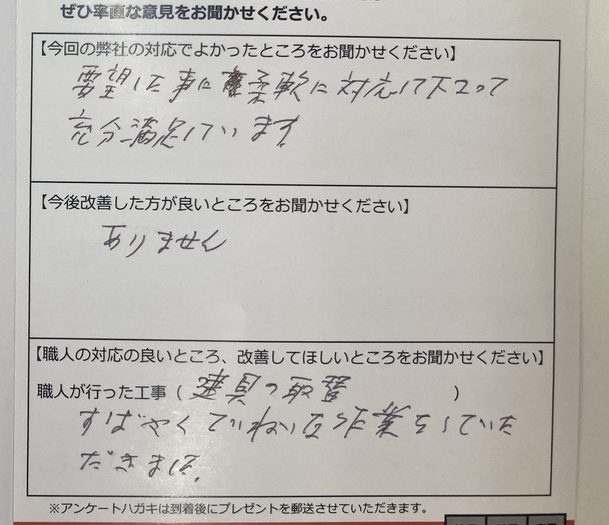 ぜひ率直な意見をお聞かせください。
【今回の弊社の対応でよかったところをお聞かせください】
要望した事に柔軟に対応して下さって
充分満足しています
【今後改善した方が良いところをお聞かせください】
ありません
【職人の対応の良いところ、改善してほしいところをお聞かせください】
職人が行った工事（建具の取替）
すばやくていねいな作業をしていた
だきました。
※アンケートハガキは到着後にプレゼントを郵送させていただきます。